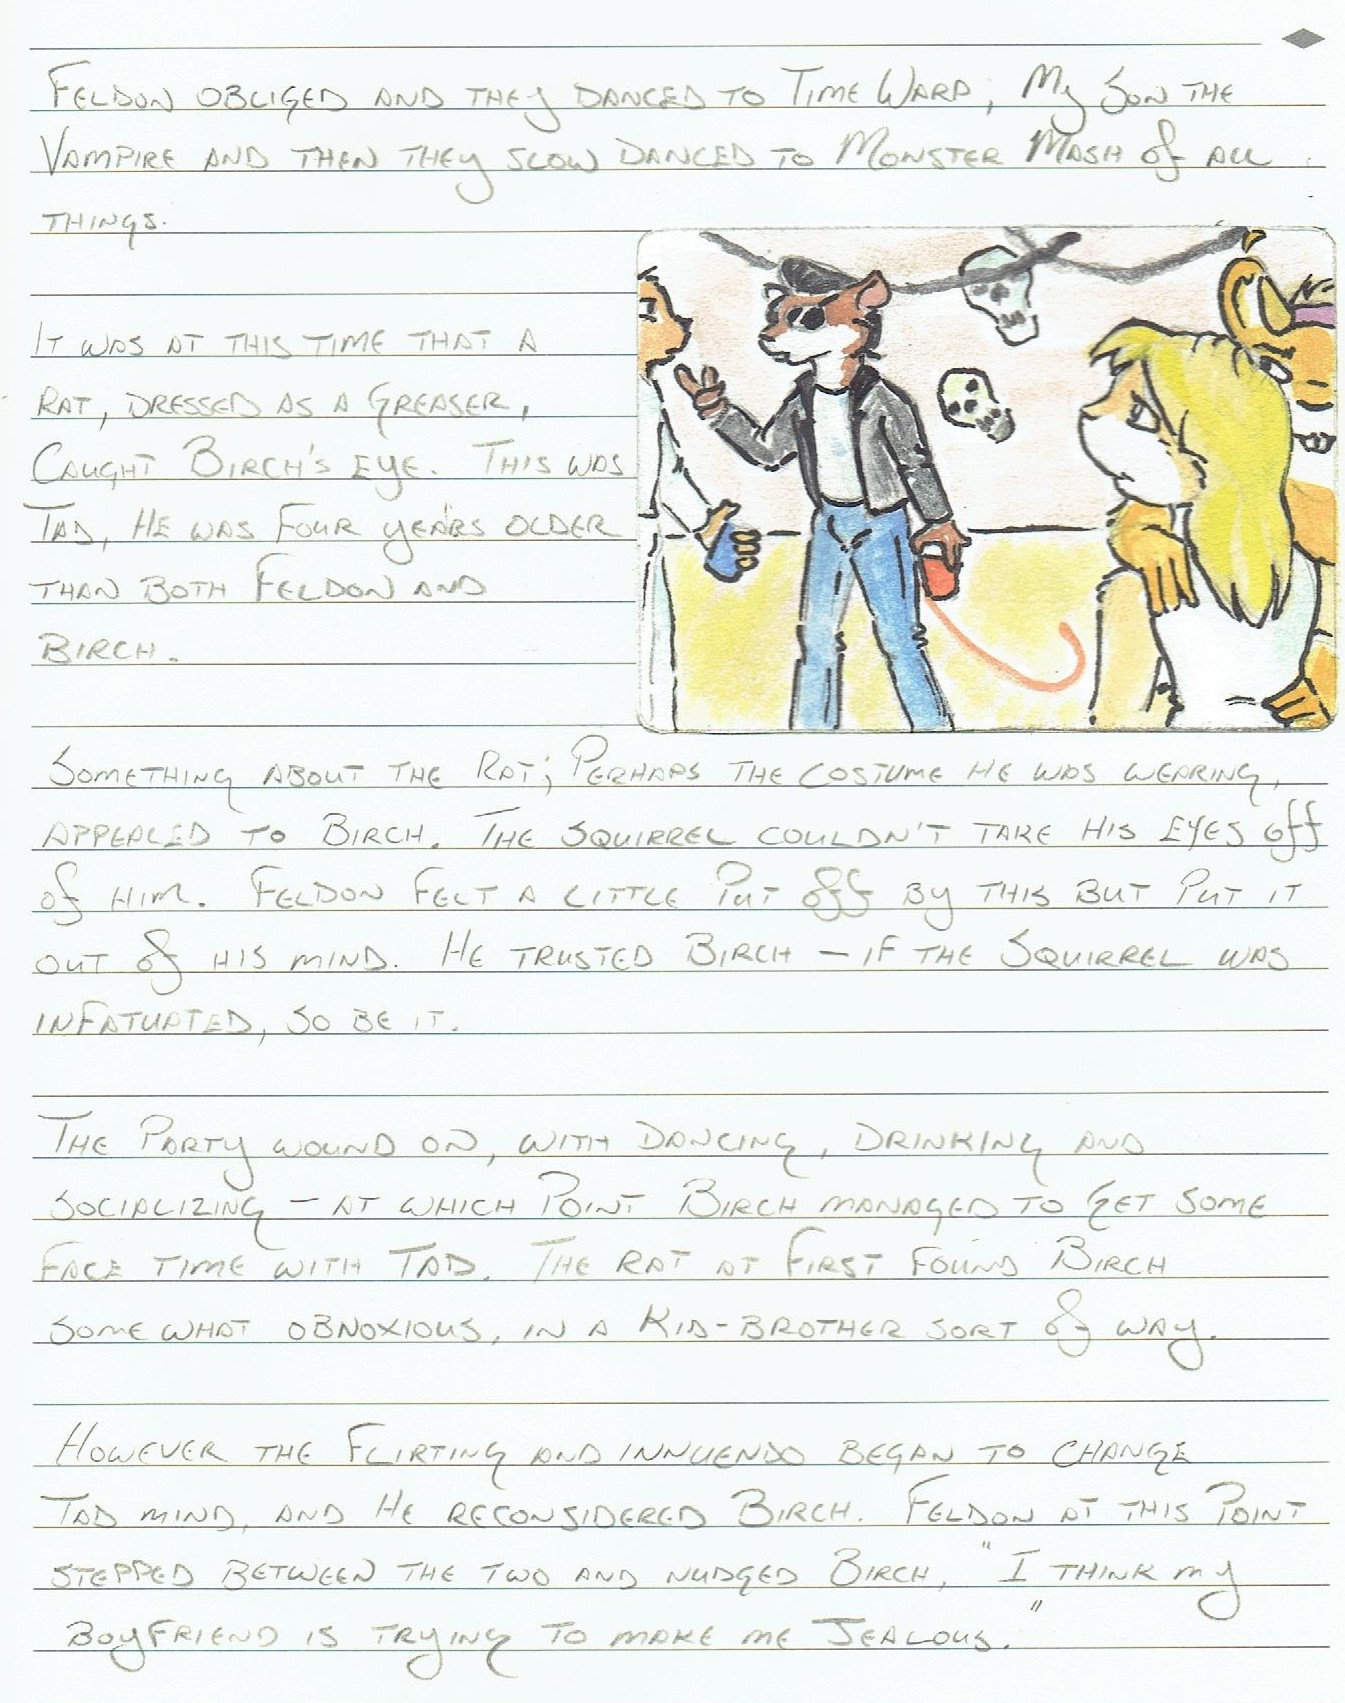 Feldon obliged and they danced to Time Warp, My Son the
Vampire and then they slow danced to Monster Mash of all
things.
It was at this time that a
rat, dressed as a Greaser,
caught Birch's eye. This was
Tad, he was four years older
than both Feldon and
Birch.
Something about the rat; perhaps the costume he was wearing,
appealed to Birch. The squirrel couldn't take his eyes off
of him. Feldon felt a little put off by this but put it
out of his mind. He trusted Birch – if the squirrel was
infatuated, so be it.
The party wound on, with dancing, drinking and
socializing – at which point Birch managed to get some
face time with Tad. The rat at first found Birch
somewhat obnoxious, in a kid-brother sort of way.
However the flirting and innuendo began to change
Tad mind, and he reconsidered Birch. Feldon at this point
stepped between the two and nudged Birch, "I think my
boyfriend is trying to make me jealous."